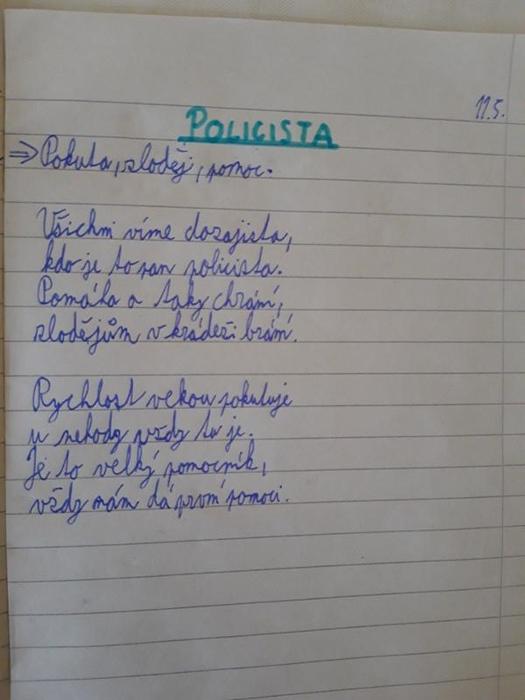 11.5.
POLICISTA
⇒ Pokuta, zloděj, pomoc.
Všichni víme dozajista,
kdo je to pan policista.
Pomáha a taky chrání,
zlodějům v krádeži brání.
Rychlost vekou pokutuje
u nehody vždy tu je.
Je to velký pomocník,
vždy nám dá první pomoci.